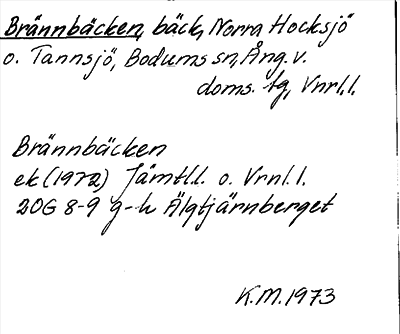 Brännbäcken, bäck, Norra Hocksjö
o. Tannsjö, Bodums sn, Ång. v.
doms. tg, Vnrl.l.
Brännbäcken
ek (1972) Jämtl.l. o. Vrnl.l.
20G 8-9 g-h Älgtjärnberget
K.M. 1973